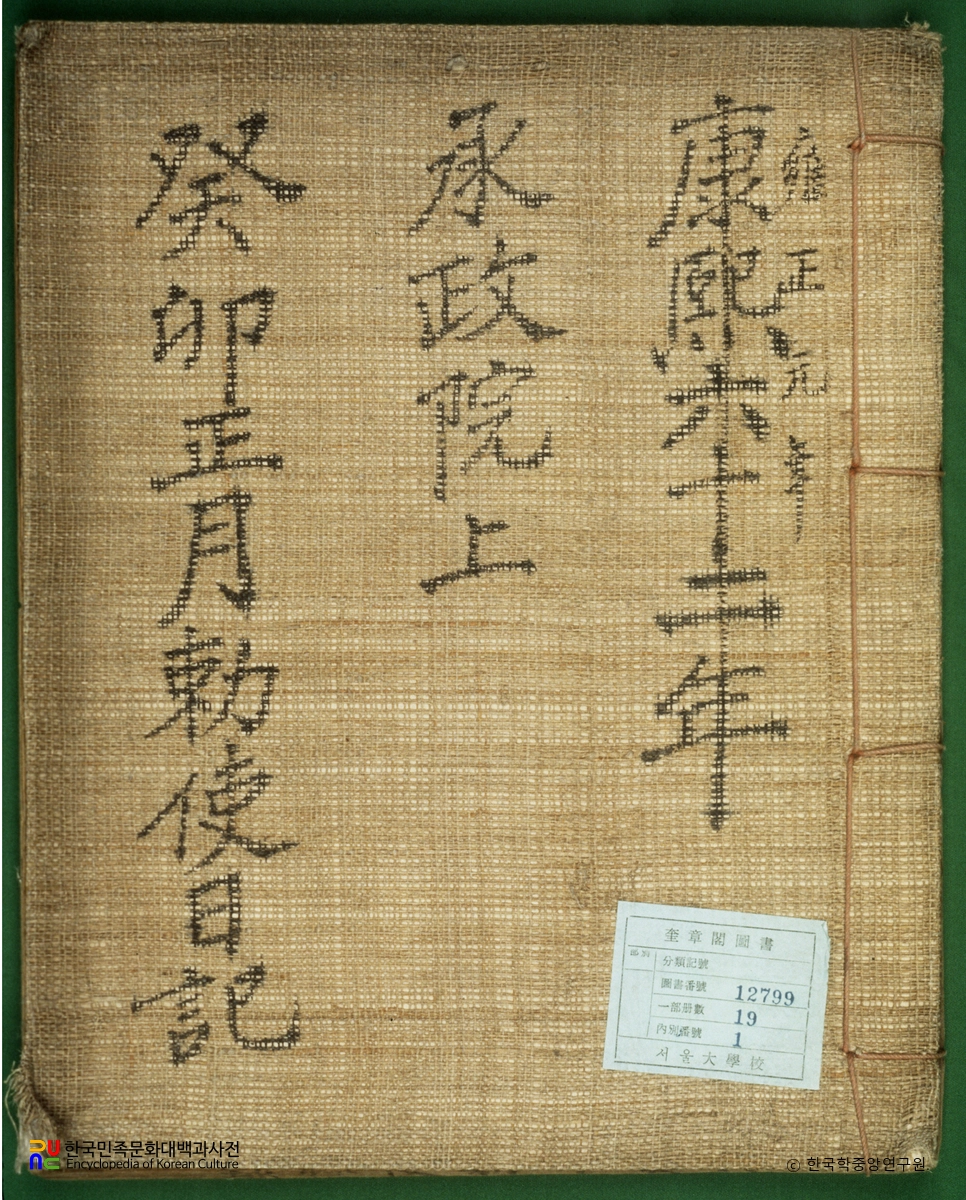 雍正元年
康熙六十二年
承政院上
癸卯正月勅使日記
奎章閣圖書
分類記號
圖書番號 12799
一部册數 19
內別番號 1
서울大學校
한국민족문화대백과사전
Encyclopedia of Korean Culture
© 한국학중앙연구원